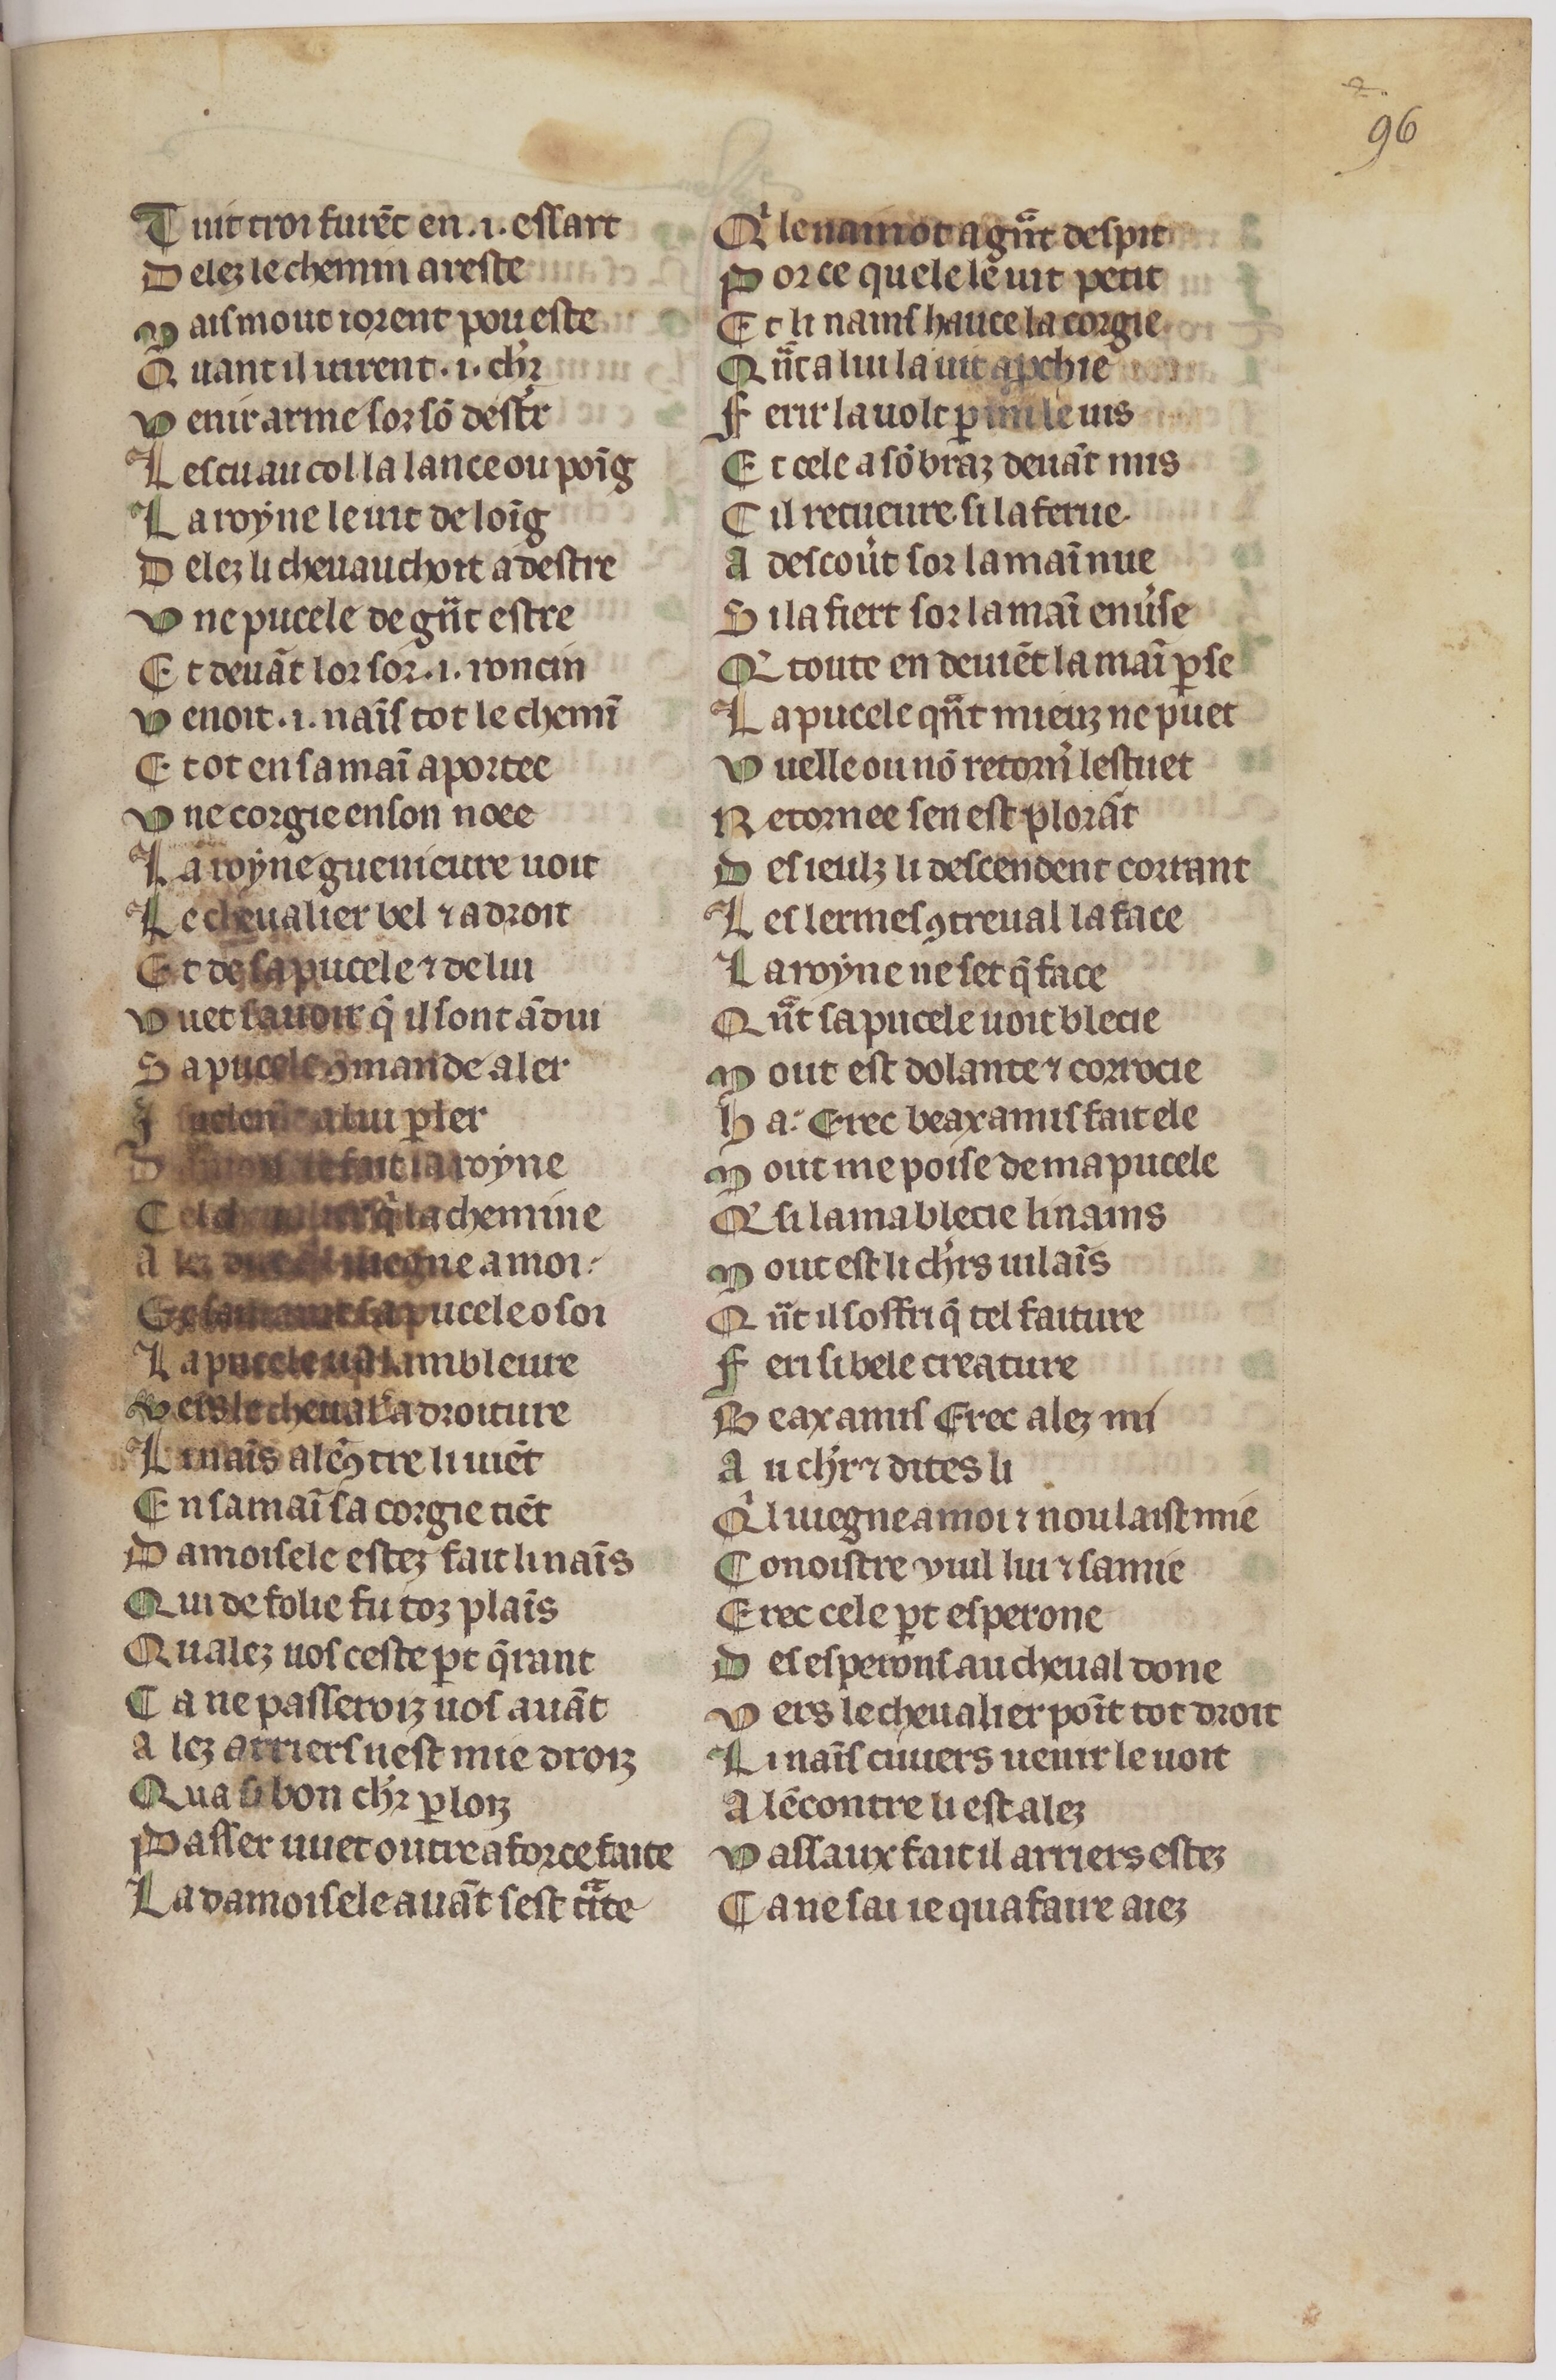 96
Tuit troi furēt en .i. essart
Delez le chemin areste
Mais mout iorent pou este
Quant il uirent .i. chr̄
Venir arme sor sō destr̄
Lescu au col la lance ou poīg
La royne le uit de loīg
Delez li cheuauchoit a destre
Vne pucele de gn̄t estre
Et deuāt lor sor .i. roncin
Venoit .i. naīs tot le chemī
Et ot en sa maī aportee
Vne corgie en son noee
La royne guenieure uoit
Le cheualier bel ⁊ adroit
Et de sa pucele ⁊ de lui
Vuet sauoir q̄ il sont ādui
Sa pucele ꝯmande aler
a lui ꝑler
fait la royne
Cel qͥ la chemine
Alez uiegne a moi
sa pucele o soi
La pucele lambleure
Vers le cheual̄ a droiture
Li naīs alēꝯtre li uiēt
En sa maī sa corgie tiēt
Damoisele estez fait li naīs
Qui de folie fu toz plaīs
Qualez uos ceste ꝑt q̄rant
Ca ne passeroiz uos auāt
Alez arriers nest mie droiz
Qua si bon chr̄ ꝑloiz
Passer uuet outre a force faite
La damoisele auāt sest tͣite
Qͥ le nain ot a gn̄t despit
Por ce quele le uit petit
Et li nains hauce la corgie
Qn̄t a lui la uit apꝛchie
Ferir la uolt ꝑmi le uis
Et cele a sō braz deuāt mis
Cil recueure si la ferue
A descou't sor la maī nue
Si la fiert sor la maī enu'se
Q' toute en deuiēt la maī ꝑse
La pucele qn̄t mieuz ne puet
Vuelle ou nō retorn' lestuet
Retornee sen est plorāt
Des ieulz li descendent corrant
Les lermes ꝯtreual la face
La royne ne set q̄ face
Qn̄t sa pucele uoit blecie
Mout est dolante ⁊ corrocie
Ha Erec beax amis fait ele
Mout me poise de ma pucele
Q' si la ma blecie li nains
Mout est li chr̄s uilaīs
Qn̄t il soffri q̄ tel faiture
Feri si bele creature
Beax amis Erec alez mi
Au chr̄ ⁊ dites li
Qͥl uiegne a moi ⁊ nou laist mie
Conoistre vuil lui ⁊ samie
Erec cele ꝑt esperone
Des esperons au cheual done
Vers le cheualier poīt tot droit
Li naīs cuuers uenir le uoit
A lēcontre li est alez
Vassaux fait il arriers estez
Ca ne sai ie qua faire aiez